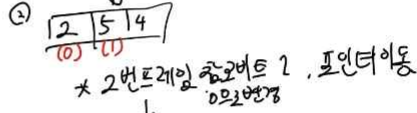 ② 2 5 4
(0) (1)
* 2번프레임 참조비트 1, 포인터이동
0으로변경